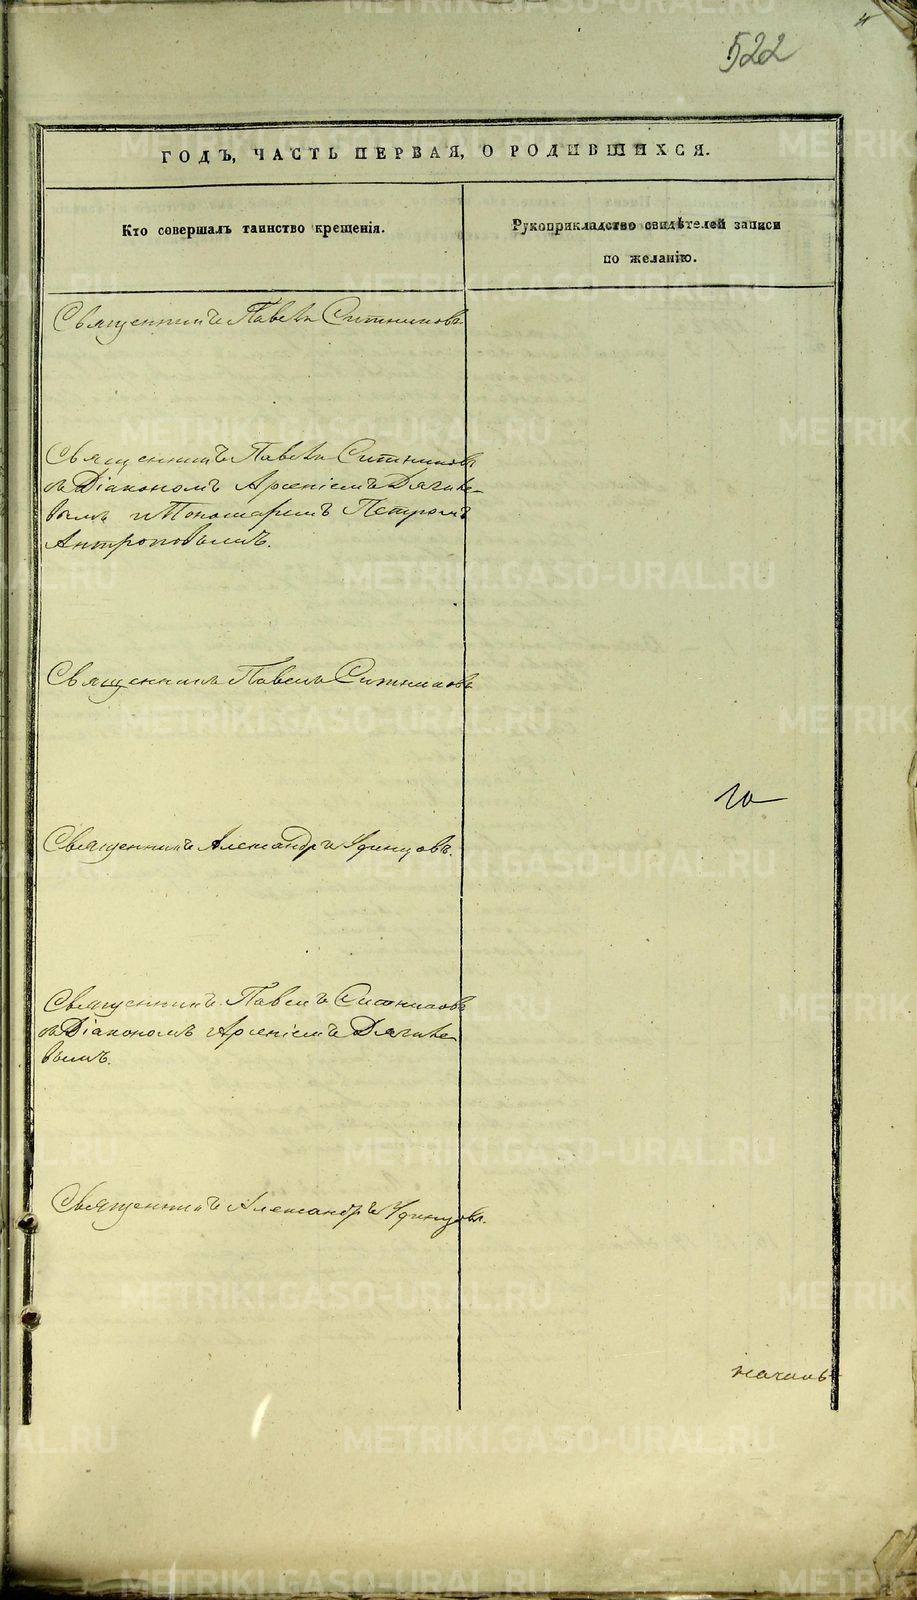 522
ГОДЪ, ЧАСТЬ ПЕРВАЯ, О РОДИВШИХСЯ.
Кто совершалъ таинство крещенія.
Рукоприкладство свидѣтелей записи
по желанію.
Священникъ Павелъ Ситниковъ
Священникъ Павелъ Ситниковъ
съ Діакономъ Арсеніемъ Дягиле-
вымъ и Пономаремъ Петромъ
Антроповымъ.
Священникъ Павелъ Ситниковъ
Священникъ Александръ Удинцовъ.
Священникъ Павелъ Ситниковъ
съ Діакономъ Арсеніемъ Дягиле-
вымъ.
Священникъ Александръ Удинцовъ.
METRIKI.GASO-URAL.RU